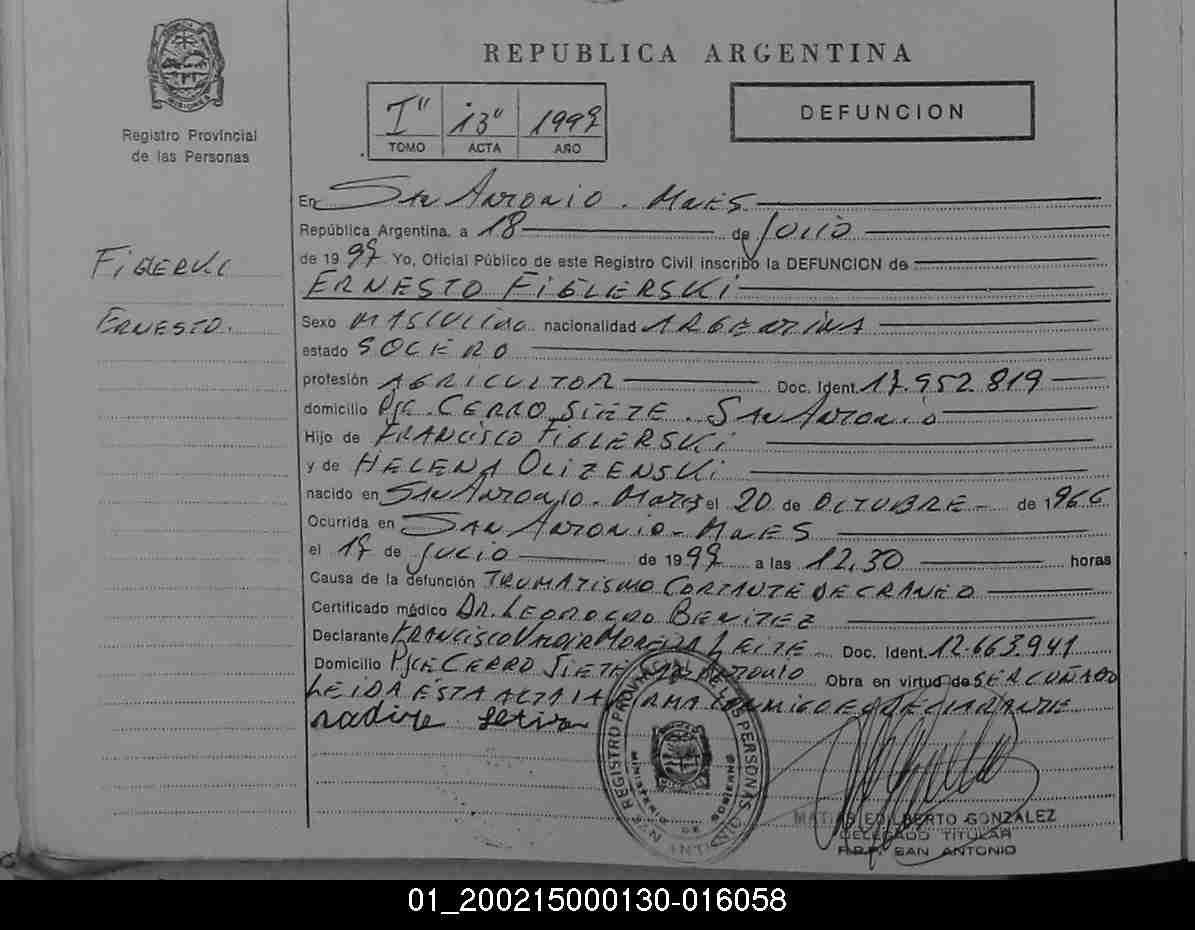 REPUBLICA ARGENTINA
MISIONES
Registro Provincial
de las Personas
I" 13" 1997
TOMO ACTA AÑO
DEFUNCION
En San Antonio. Mnes.
República Argentina, a 18 de Julio
de 1997 Yo, Oficial Público de este Registro Civil inscribo la DEFUNCION de
Figlerski
ERNESTO FIGLERSKI
Ernesto.
Sexo MASCULINO nacionalidad ARGENTINA
estado SOLTERO
profesión AGRICULTOR Doc. Ident. 17.952.819
domicilio Pje. CERRO SIETE. SAN ANTONIO
Hijo de FRANCISCO FIGLERSKI
y de HELENA OLIZENSKI
nacido en SAN ANTONIO. Mnes el 20 de OCTUBRE de 1966
Ocurrida en SAN ANTONIO - MNES
el 17 de JULIO de 1997 a las 12,30 horas
Causa de la defunción TRUMATISMO CORTANTE DE CRANEO
Certificado médico DR. LEOPOLDO BENITEZ
Declarante FRANCISCO MOREIRA LEITE Doc. Ident. 12.663.941
Domicilio Pje CERRO SIETE SAN ANTONIO Obra en virtud de SER CUÑADO
LEIDA ESTA ACTA LA FIRMA CONMIGO EL DECLARANTE
REGISTRO PROVINCIAL DE LAS PERSONAS
MINISTERIO DE GOBIERNO
SAN ANTONIO
MATIAS EDILBERTO GONZALEZ
DELEGADO TITULAR
R.P.P. SAN ANTONIO
01_200215000130-016058